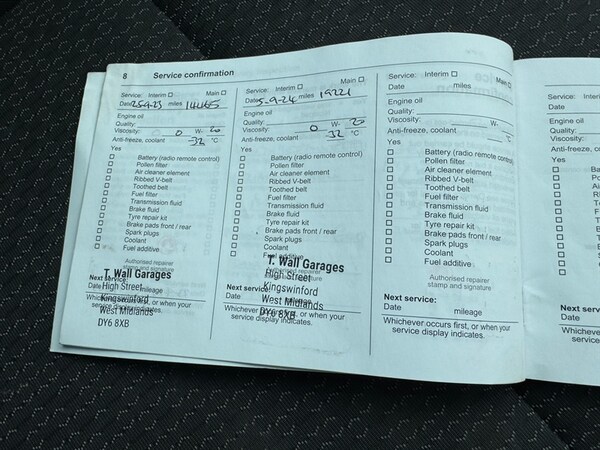 8 Service confirmation
Service: Interim ☐ Main ☐
Date 25-9-23 miles 14465
Engine oil
Quality:
Viscosity: 0 W- 20
Anti-freeze, coolant -32 °C
Yes
☐ Battery (radio remote control)
☐ Pollen filter
☐ Air cleaner element
☐ Ribbed V-belt
☐ Toothed belt
☐ Fuel filter
☐ Transmission fluid
☐ Brake fluid
☐ Tyre repair kit
☐ Brake pads front / rear
☐ Spark plugs
☐ Coolant
☐ Fuel additive
Authorised repairer
stamp and signature
T. Wall Garages
High Street
Kingswinford
West Midlands
DY6 8XB
Next service:
Date mileage
Whichever occurs first, or when your
service display indicates.
Service: Interim ☐ Main ☐
Date 5-9-24 miles 19221
Engine oil
Quality:
Viscosity: 0 W- 20
Anti-freeze, coolant -32 °C
Yes
☐ Battery (radio remote control)
☐ Pollen filter
☐ Air cleaner element
☐ Ribbed V-belt
☐ Toothed belt
☐ Fuel filter
☐ Transmission fluid
☐ Brake fluid
☐ Tyre repair kit
☐ Brake pads front / rear
☐ Spark plugs
☐ Coolant
☐ Fuel additive
Authorised repairer
stamp and signature
T. Wall Garages
High Street
Kingswinford
West Midlands
DY6 8XB
Next service:
Date mileage
Whichever occurs first, or when your
service display indicates.
Service: Interim ☐ Main ☐
Date miles
Engine oil
Quality:
Viscosity: W-
Anti-freeze, coolant °C
Yes
☐ Battery (radio remote control)
☐ Pollen filter
☐ Air cleaner element
☐ Ribbed V-belt
☐ Toothed belt
☐ Fuel filter
☐ Transmission fluid
☐ Brake fluid
☐ Tyre repair kit
☐ Brake pads front / rear
☐ Spark plugs
☐ Coolant
☐ Fuel additive
Authorised repairer
stamp and signature
Next service:
Date mileage
Whichever occurs first, or when your
service display indicates.
Service:
Date
Engine oil
Quality:
Viscosity:
Anti-freeze, co
Yes
Next serv
Date
Whichever
service